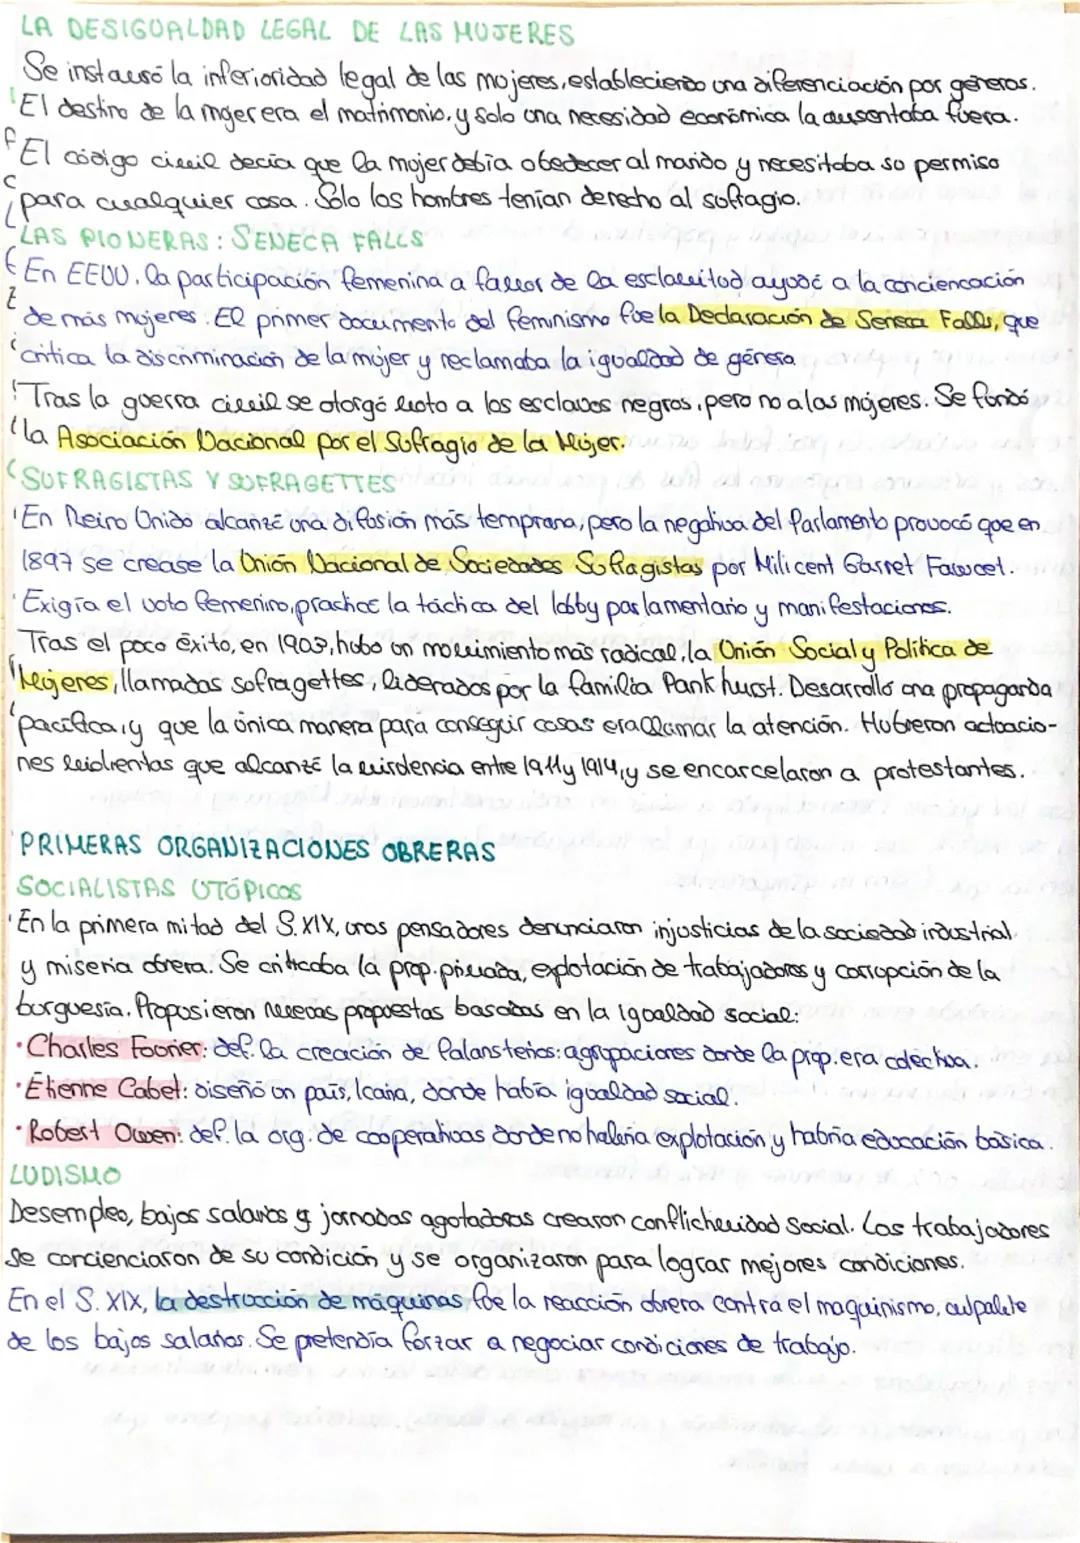 LA DESIGUALDAD LEGAL DE LAS MUJERES
Se instauró la inferioridad legal de las mujeres, estableciendo una diferenciación por géneros.
El destino de la mujer era el matrimonio, y solo una necesidad económica la ausentaba fuera.
El código civil decía que la mujer debía obedecer al marido y necesitaba su permiso
para cualquier cosa. Sólo los hombres tenían derecho al sufragio.
LAS PIONERAS: SENECA FALLS
En EEUU, la participación femenina a favor de la esclavitud ayudó a la concienciación
de más mujeres. El primer documento del feminismo fue la Declaración de Seneca Falls, que
critica la discriminación de la mujer y reclamaba la igualdad de género.
Tras la guerra civil se otorgó voto a los esclavos negros, pero no a las mujeres. Se fundó
la Asociación Nacional por el Sufragio de la Mujer.
SUFRAGISTAS Y SUFRAGETTES
En Reino Unido alcanzó una difusión más temprana, pero la negativa del Parlamento provocó que en
1897 se crease la Unión Nacional de Sociedades Sufragistas por Milicent Garret Fawcet.
Exigía el voto femenino, practicó la táctica del lobby parlamentario y manifestaciones.
Tras el poco éxito, en 1903, hubo un movimiento más radical, la Unión Social y Política de
Mujeres, llamadas sufragettes, liderados por la familia Pankhurst. Desarrolló una propaganda
pacífica, y que la única manera para conseguir cosas era llamar la atención. Hubieron actuacio-
nes violentas que alcanzó la virulencia entre 1911 y 1914, y se encarcelaron a protestantes.
PRIMERAS ORGANIZACIONES OBRERAS
SOCIALISTAS UTÓPICOS
En la primera mitad del S.XIX, unos pensadores denunciaron injusticias de la sociedad industrial
y miseria obrera. Se criticaba la prop. privada, explotación de trabajadores y corrupción de la
burguesía. Propusieron nuevas propuestas basadas en la igualdad social:
· Charles Fourier: def. la creación de falansterios: agrupaciones donde la prop. era colectiva.
· Étienne Cabet: diseñó un país, Icaria, donde había igualdad social.
· Robert Owen: def. la org. de cooperativas donde no habría explotación y habría educación básica.
LUDISMO
Desempleo, bajos salarios y jornadas agotadoras crearon conflictividad social. Los trabajadores
se concienciaron de su condición y se organizaron para lograr mejores condiciones.
En el S. XIX, la destrucción de máquinas fue la reacción obrera contra el maquinismo, culpable
de los bajos salarios. Se pretendía forzar a negociar condiciones de trabajo.